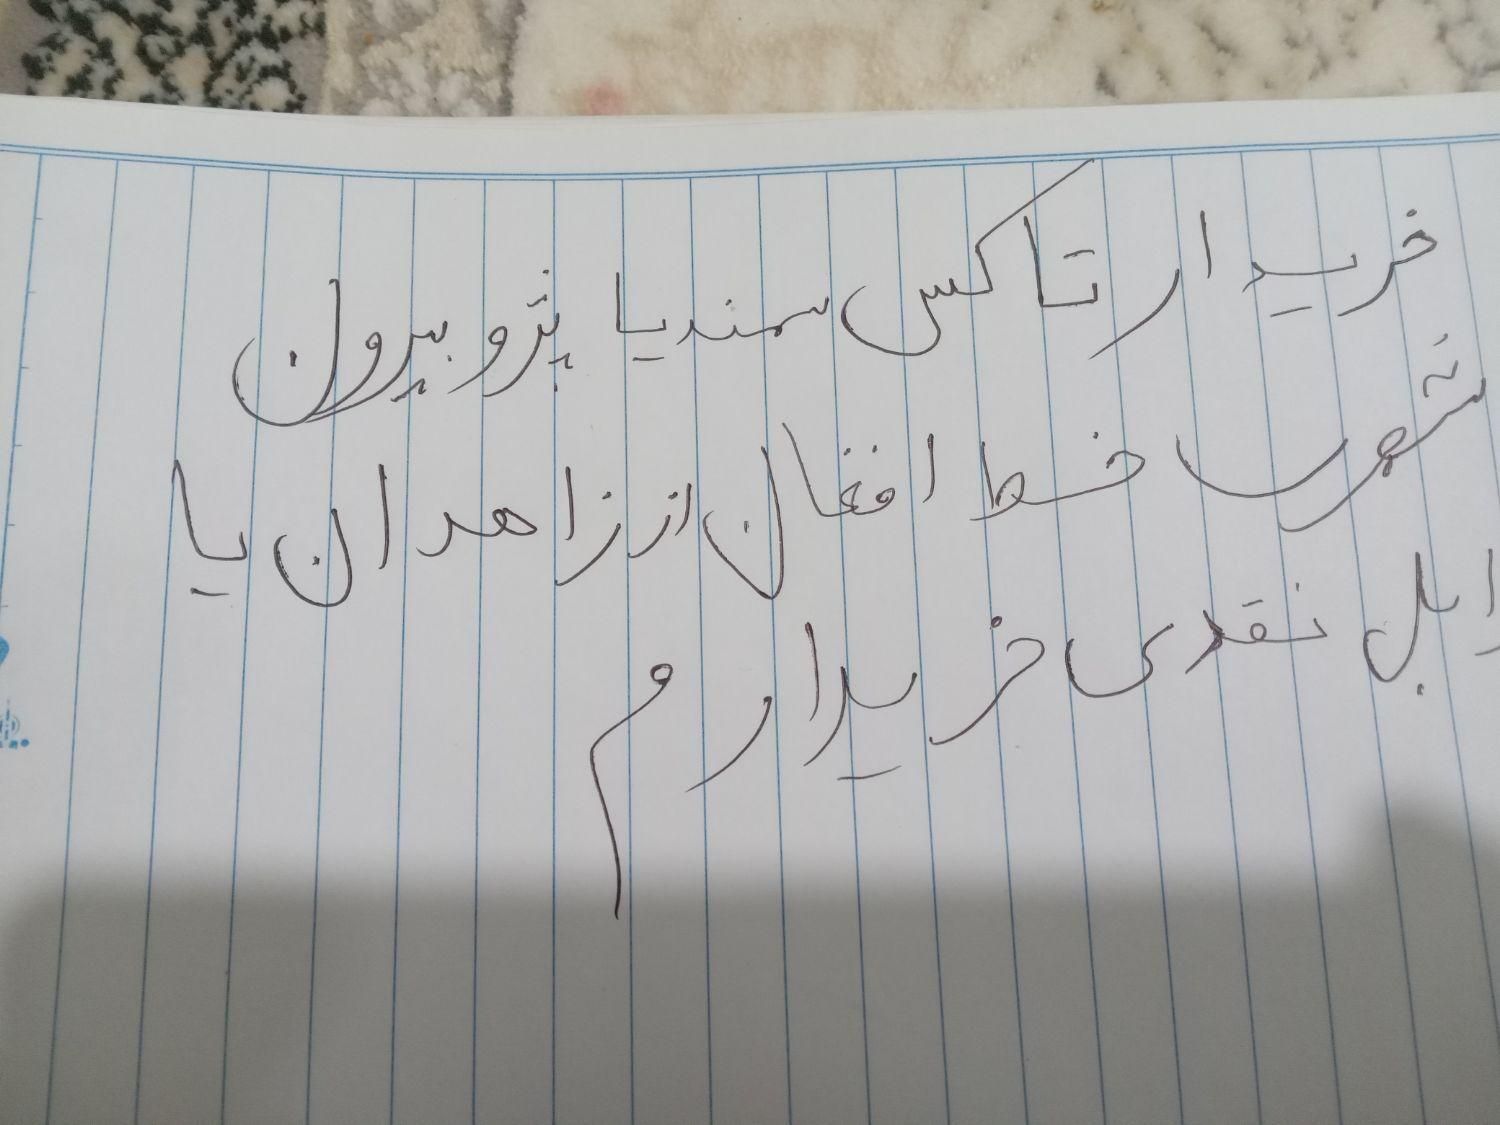 خریدار تاکس سمند یا پژو بیرون
شهرب خط افغان از زاهدان یا
زابل نقدی خریدارم